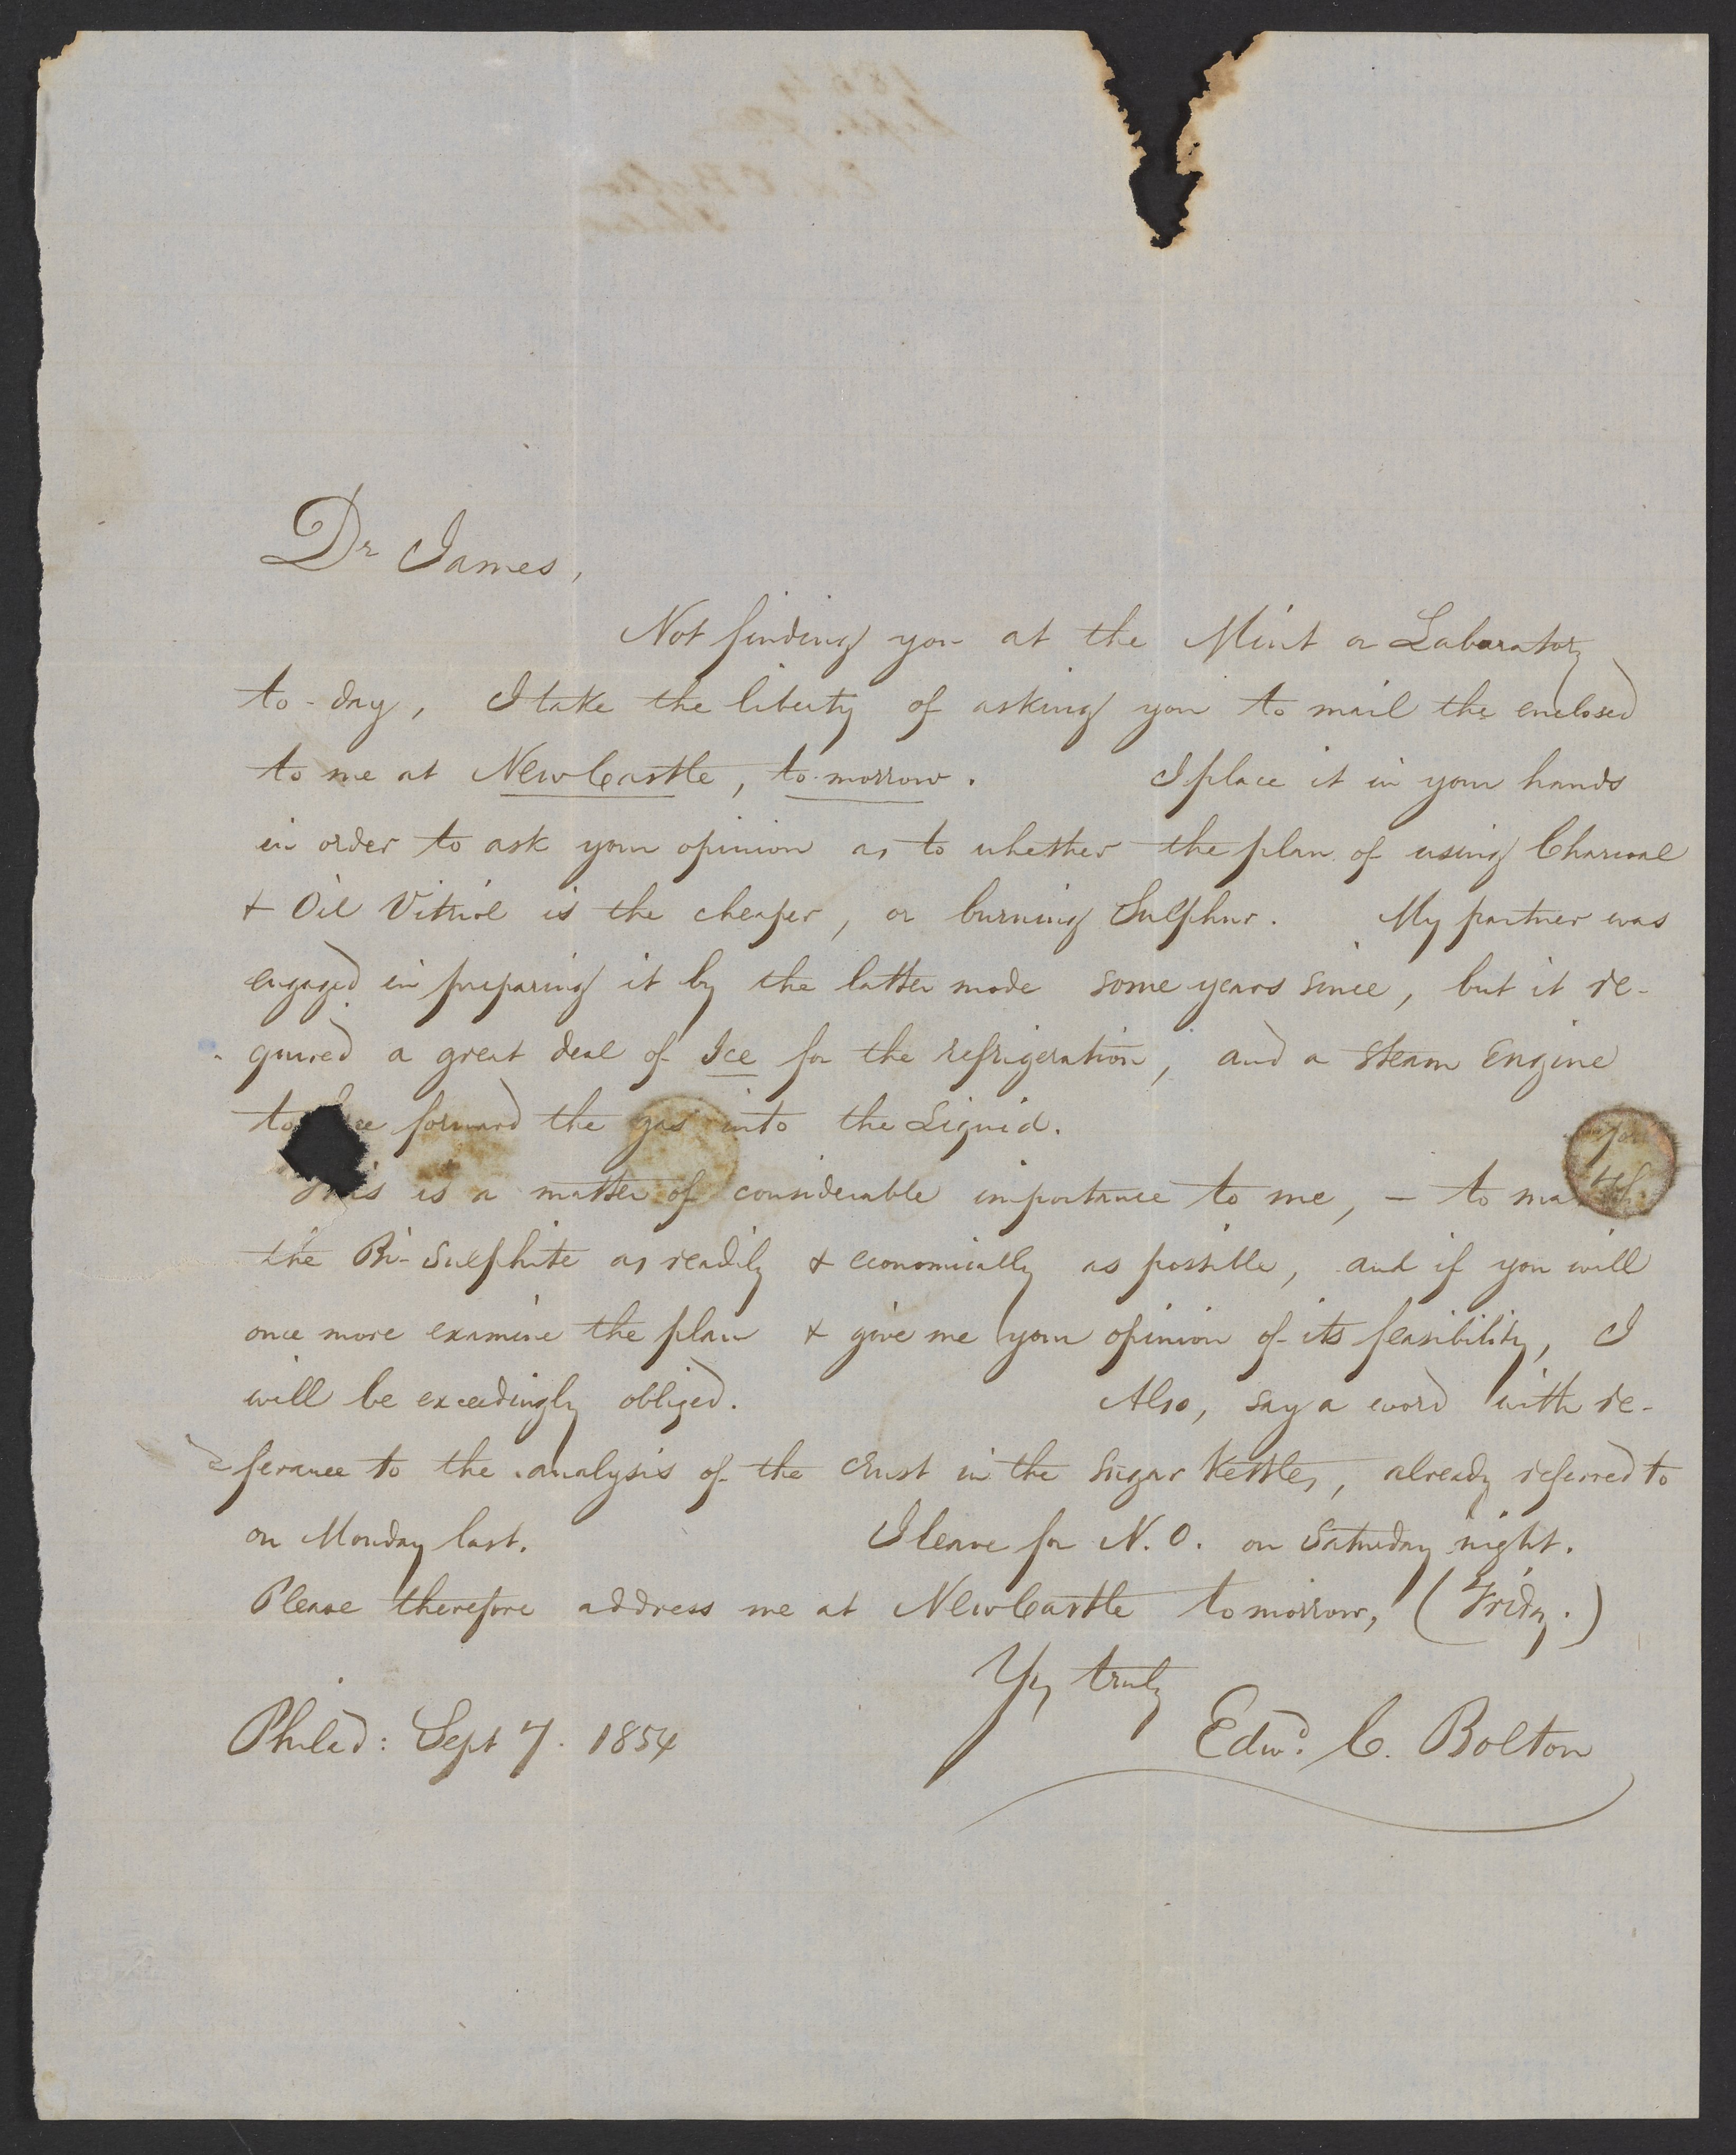 Dr James,
Not finding you at the Mint or Laboratory
to-day, I take the liberty of asking you to mail the enclosed
to me at NewCastle, to-morrow. I place it in your hands
in order to ask your opinion as to whether the plan of using Charcoal
& Oil Vitriol is the cheaper, or burning Sulphur. My partner was
engaged in preparing it by the latter mode some years since, but it re-
quired a great deal of Ice for the refrigeration, and a Steam Engine
to forward the gas into the Liquid.
This is a matter of considerable importance to me, – to
the Bi-Sulphite as readily & economically as possible, and if you will
once more examine the plan & give me your opinion of its feasibility, I
will be exceedingly obliged. Also, say a word with re-
ferance to the analysis of the Crust in the Sugar Kettles, already referred to
on Monday last. I leave for N. O. on Saturday night.
Please therefore address me at NewCastle tomorrow, (Fridy.)
Yrs truly
Edwd. C. Bolton
Philad: Sept 7. 1854